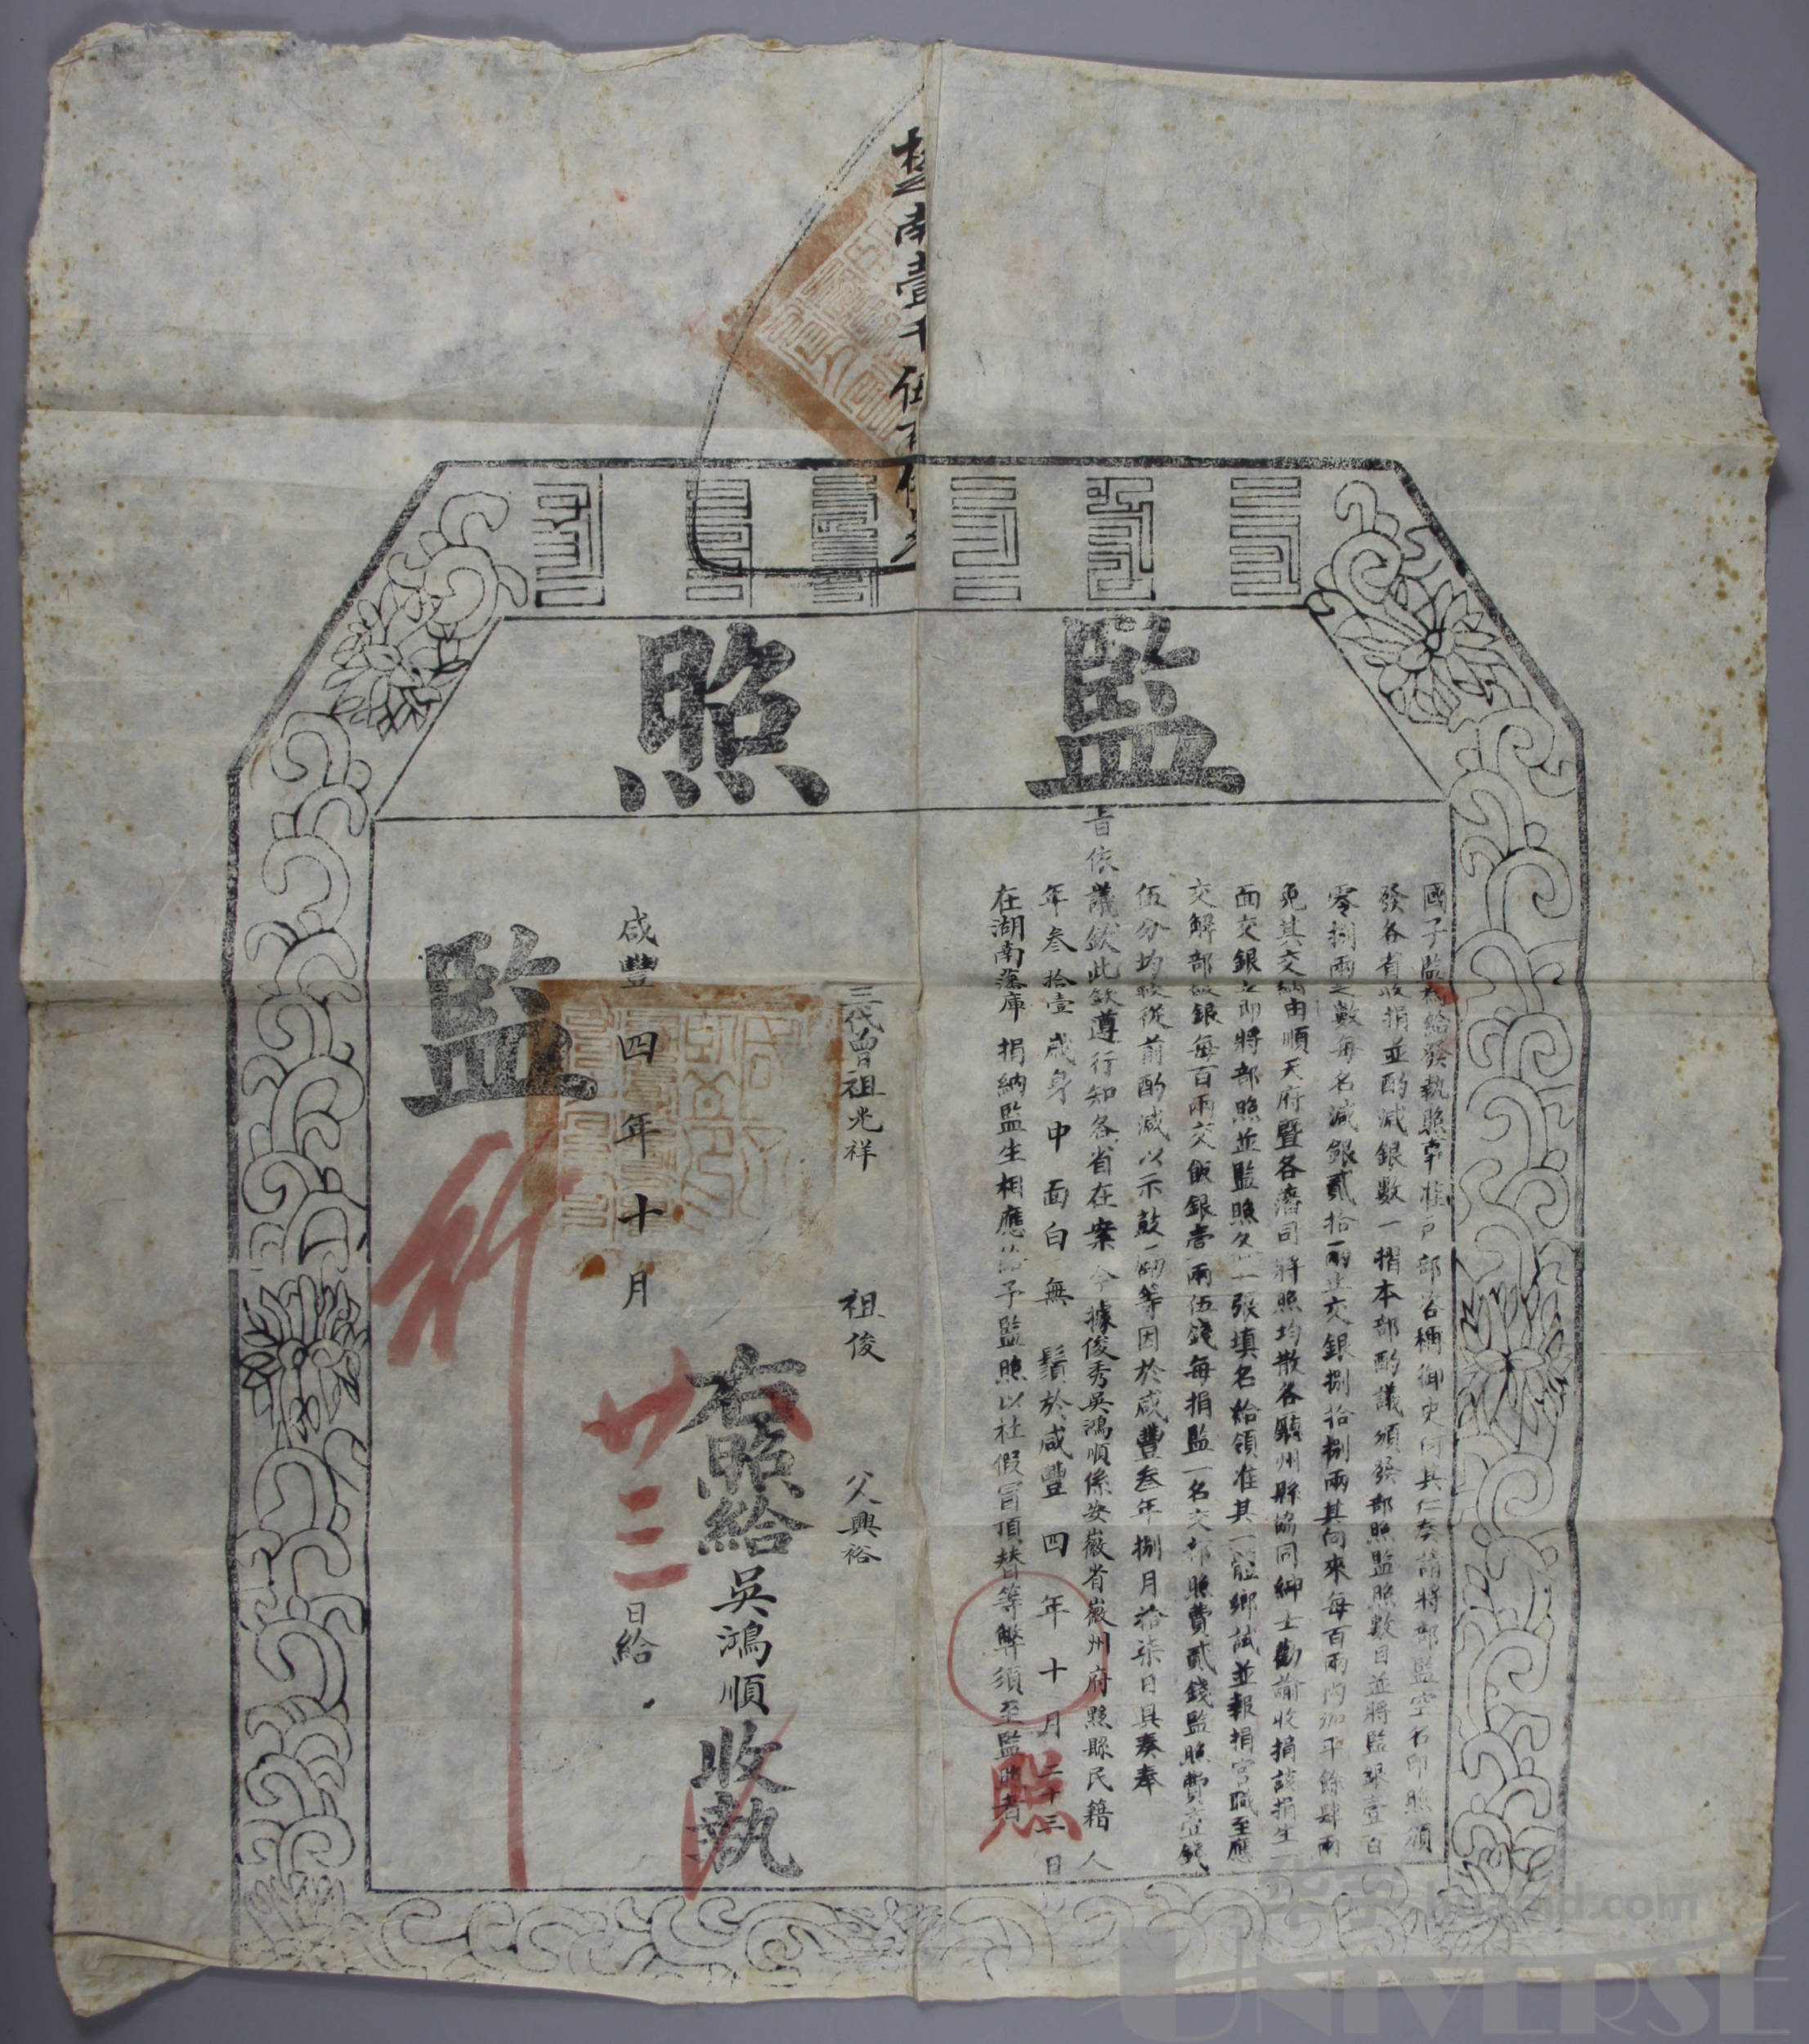 監照
國子監為給發執照事准戶部咨稱御史何其仁奏請將部監空名印照頒
發各省收捐並酌減銀數一摺本部酌議頒發部照監照數目並將監銀壹百
零捌兩之數每名減銀貳拾兩共交銀捌拾捌兩其向來每百兩內加平餘肆兩
免其交納由順天府暨各藩司將照均散各廳州縣協同紳士勸諭收捐該捐生一
面交銀立即將部照並監照各一張填名給領准其一體鄉試並報捐官職至應
交解部飯銀每百兩交飯銀壹兩伍錢每捐監一名交部照費貳錢監照費壹錢
伍分均較從前酌減以示鼓勵等因於咸豐叁年捌月拾柒日具奏奉
旨依議欽此欽遵行知各省在案今據俊秀吳鴻順係安徽省徽州府黟縣民籍人
年叁拾壹歲身中面白無鬚於咸豐四年十月二十三日
在湖南藩庫捐納監生相應給予監照以杜假冒頂替等弊須至監照者
照
三代曾祖兆祥 祖俊 父興裕
右照給吳鴻順收執
咸豐四年十月廿三日給
監
行
华宇 huabid.com
UNIVERSE